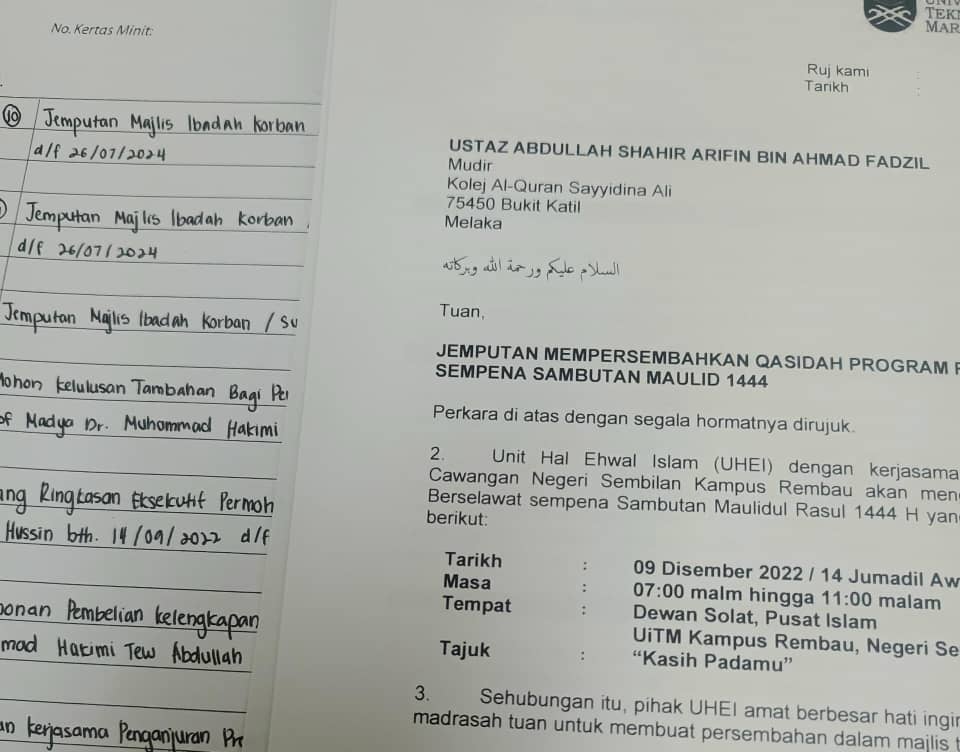 No. Kertas Minit:
10 Jemputan Majlis Ibadah Korban
d/f 26/07/2024
Jemputan Majlis Ibadah Korban
d/f 26/07/2024
Jemputan Majlis Ibadah Korban /
Mohon Kelulusan Tambahan Bagi
Madya Dr. Muhammad Hakimi
Ringkasan Eksekutif
Hussin bth. 14/09/2022 d/f
Pembelian kelengkapan
Hakimi Tew Abdullah
kerjasama Penganjuran
Ruj kami :
Tarikh :
USTAZ ABDULLAH SHAHIR ARIFIN BIN AHMAD FADZIL
Mudir
Kolej Al-Quran Sayyidina Ali
75450 Bukit Katil
Melaka
السلام عليكم ورحمة الله وبركاته
Tuan,
JEMPUTAN MEMPERSEMBAHKAN QASIDAH PROGRAM
SEMPENA SAMBUTAN MAULID 1444
Perkara di atas dengan segala hormatnya dirujuk.
2. Unit Hal Ehwal Islam (UHEI) dengan kerjasama
Cawangan Negeri Sembilan Kampus Rembau akan
Berselawat sempena Sambutan Maulidul Rasul 1444 H
berikut:
Tarikh : 09 Disember 2022 / 14 Jumadil
Masa : 07:00 malm hingga 11:00 malam
Tempat : Dewan Solat, Pusat Islam
UiTM Kampus Rembau, Negeri
Tajuk : “Kasih Padamu”
3. Sehubungan itu, pihak UHEI amat berbesar hati
madrasah tuan untuk membuat persembahan dalam majlis